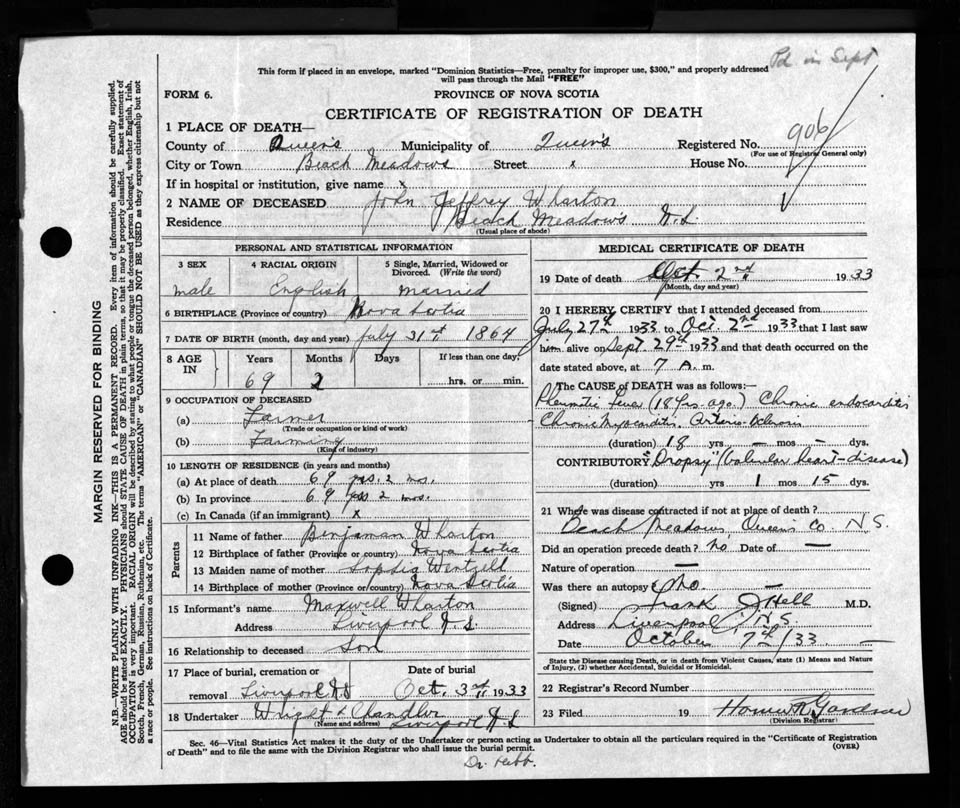 Pd in Sept
This form if placed in an envelope, marked "Dominion Statistics—Free, penalty for improper use, $300," and properly addressed
will pass through the Mail "FREE"
FORM 6.
PROVINCE OF NOVA SCOTIA
CERTIFICATE OF REGISTRATION OF DEATH
906
1 PLACE OF DEATH—
County of Queen's Municipality of Queen's Registered No.
(For use of Registrar General only)
City or Town Beach Meadows Street x House No.
If in hospital or institution, give name x
2 NAME OF DECEASED John Jeffrey Wharton
Residence Beach Meadows N.S.
(Usual place of abode)
PERSONAL AND STATISTICAL INFORMATION
3 SEX 4 RACIAL ORIGIN 5 Single, Married, Widowed or
Divorced. (Write the word)
male English married
6 BIRTHPLACE (Province or country) Nova Scotia
7 DATE OF BIRTH (month, day and year) July 31st 1864
8 AGE IN Years Months Days If less than one day,
69 2 hrs. or min.
9 OCCUPATION OF DECEASED
(a) Farmer
(Trade or occupation or kind of work)
(b) Farming
(Kind of industry)
10 LENGTH OF RESIDENCE (in years and months)
(a) At place of death 69 yrs. 2 mos.
(b) In province 69 yrs 2 mos.
(c) In Canada (if an immigrant) x
Parents
11 Name of father Benjaman Wharton
12 Birthplace of father (Province or country) Nova Scotia
13 Maiden name of mother Sophia Wentzell
14 Birthplace of mother (Province or country) Nova Scotia
15 Informant's name Maxwell Wharton
Address Liverpool N.S.
16 Relationship to deceased Son
17 Place of burial, cremation or Date of burial
removal Liverpool N.S Oct. 3rd 1933
18 Undertaker Wright & Chandler
(Name and address) Liverpool N.S
MEDICAL CERTIFICATE OF DEATH
19 Date of death Oct. 2nd 1933
(Month, day and year)
20 I HEREBY CERTIFY that I attended deceased from
July 27th 1933 to Oct. 2nd 1933 that I last saw
him alive on Sept. 29th 1933 and that death occurred on the
date stated above, at 7 A. m.
The CAUSE OF DEATH was as follows:—
Rheumatic Fever (18 Yrs. ago.) Chronic endocarditis
Chronic Myocarditis. Arterio-sclerosis
(duration) 18 yrs — mos — dys.
CONTRIBUTORY "Dropsy" (valvular heart-disease)
(duration) yrs 1 mos 15 dys.
21 Where was disease contracted if not at place of death?
Beach Meadows, Queens Co N.S.
Did an operation precede death? No Date of —
Nature of operation —
Was there an autopsy? No. —
(Signed) Frank M.D.
Address Liverpool, N.S.
Date October 7th/33 —
State the Disease causing Death, or in death from Violent Causes, state (1) Means and Nature
of Injury, (2) whether Accidental, Suicidal or Homicidal.
22 Registrar's Record Number
23 Filed 19 Homer
(Division Registrar)
Sec. 46—Vital Statistics Act makes it the duty of the Undertaker or person acting as Undertaker to obtain all the particulars required in the "Certificate of Registration
of Death" and to file the same with the Division Registrar who shall issue the burial permit.
(OVER)
Dr.
MARGIN RESERVED FOR BINDING
N.B.—WRITE PLAINLY WITH UNFADING INK—THIS IS A PERMANENT RECORD. Every item of information should be carefully supplied.
AGE should be stated EXACTLY. PHYSICIANS should STATE CAUSE OF DEATH in plain terms, so that it may be properly classified. Exact statement of
OCCUPATION is very important. RACIAL ORIGIN will be described by stating to what people or tongue the deceased person belonged, whether English, Irish,
Scotch, French, German, Russian, Ruthenian, etc. The terms "AMERICAN" or "CANADIAN" SHOULD NOT BE USED as they express citizenship but not
a race or people. See instructions on back of Certificate.